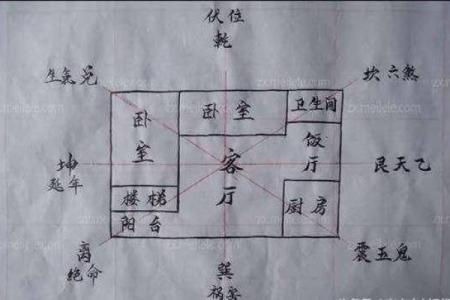 伏位
乾
生氣兑
坎六煞
卧室
卧室
卫生间
饭厅
坤
延年
客厅
艮天乙
楼梯
阳台
厨房
离
绝命
震五鬼
巽
祸害